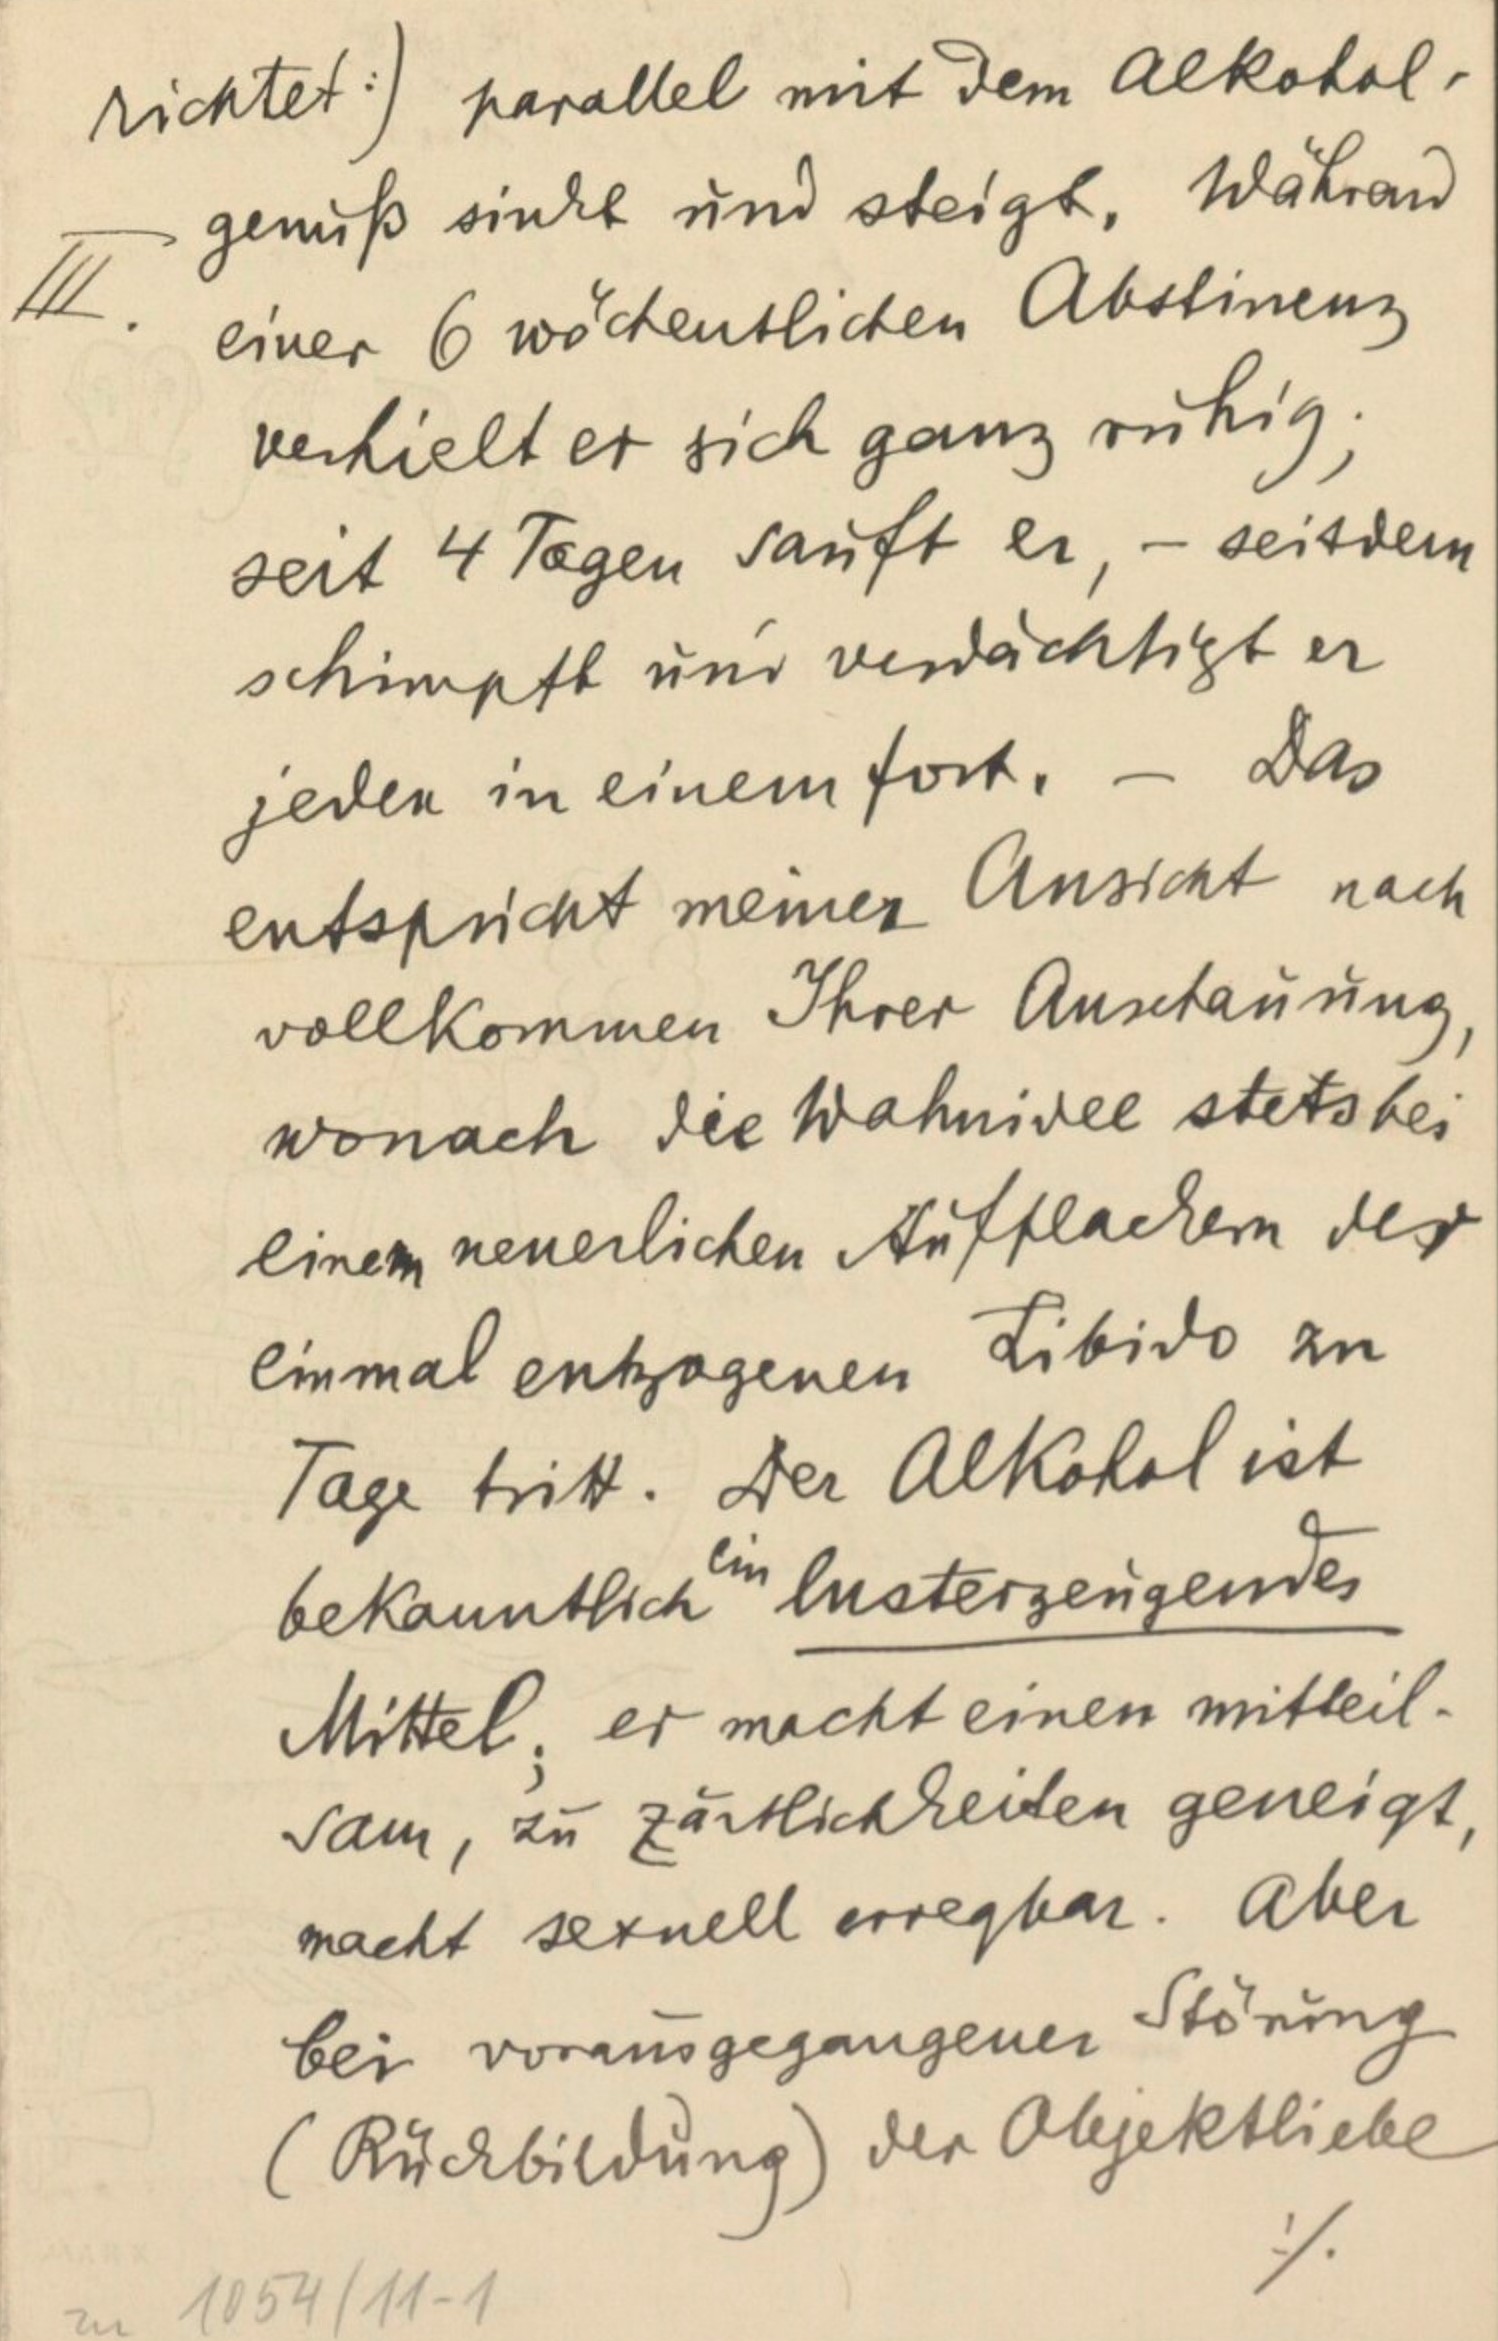 richtet:) parallel mit dem Alkohol-
genuß sinkt und steigt. Während
III.
einer 6 wöchentlichen Abstinenz
verhielt er sich ganz ruhig;
seit 4 Tagen sauft er, – seitdem
schimpft und verdächtigt er
jeden in einem fort. – Das
entspricht meiner Ansicht nach
vollkommen Ihrer Anschauung,
wonach die Wahnidee stets bei
einem neuerlichen Aufflackern der
einmal entzogenen Libido zu
Tage tritt. Der Alkohol ist
bekanntlich ein lusterzeugendes
Mittel; er macht einen mitteil-
sam, zu Zärtlichkeiten geneigt,
macht sexuell erregbar. Aber
bei vorausgegangener Störung
(Rückbildung) der Objektliebe
:/.
zu 1054/11-1